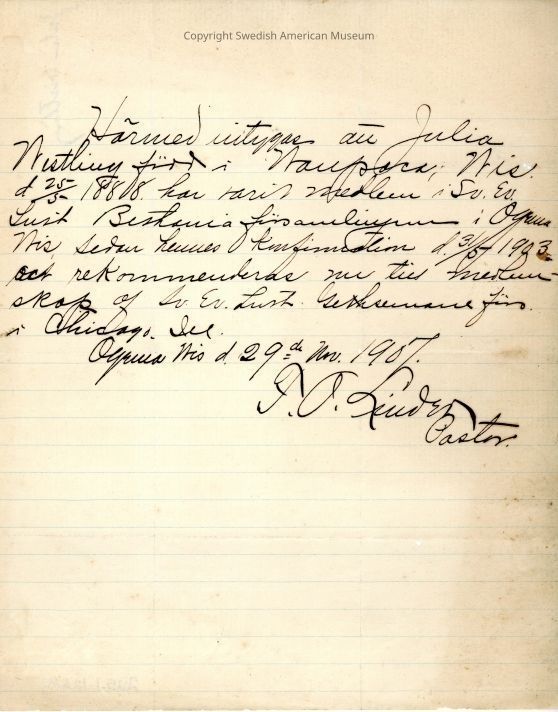 Copyright Swedish American Museum
Härmed intygas att Julia
Westling född i Waupaca, Wis
d 25/5 1888. har varit medlem i Sv. Ev.
Luth Bethania församlingen i Ogema
Wis, sedan hennes konfirmation d. 31/5 1903.
och rekommenderas nu till medlem-
skap af Sv. Ev. Luth. Gethsemane förs.
i Chicago. Ill.
Ogema Wis d. 29de Nov. 1907.
Linder
Pastor.